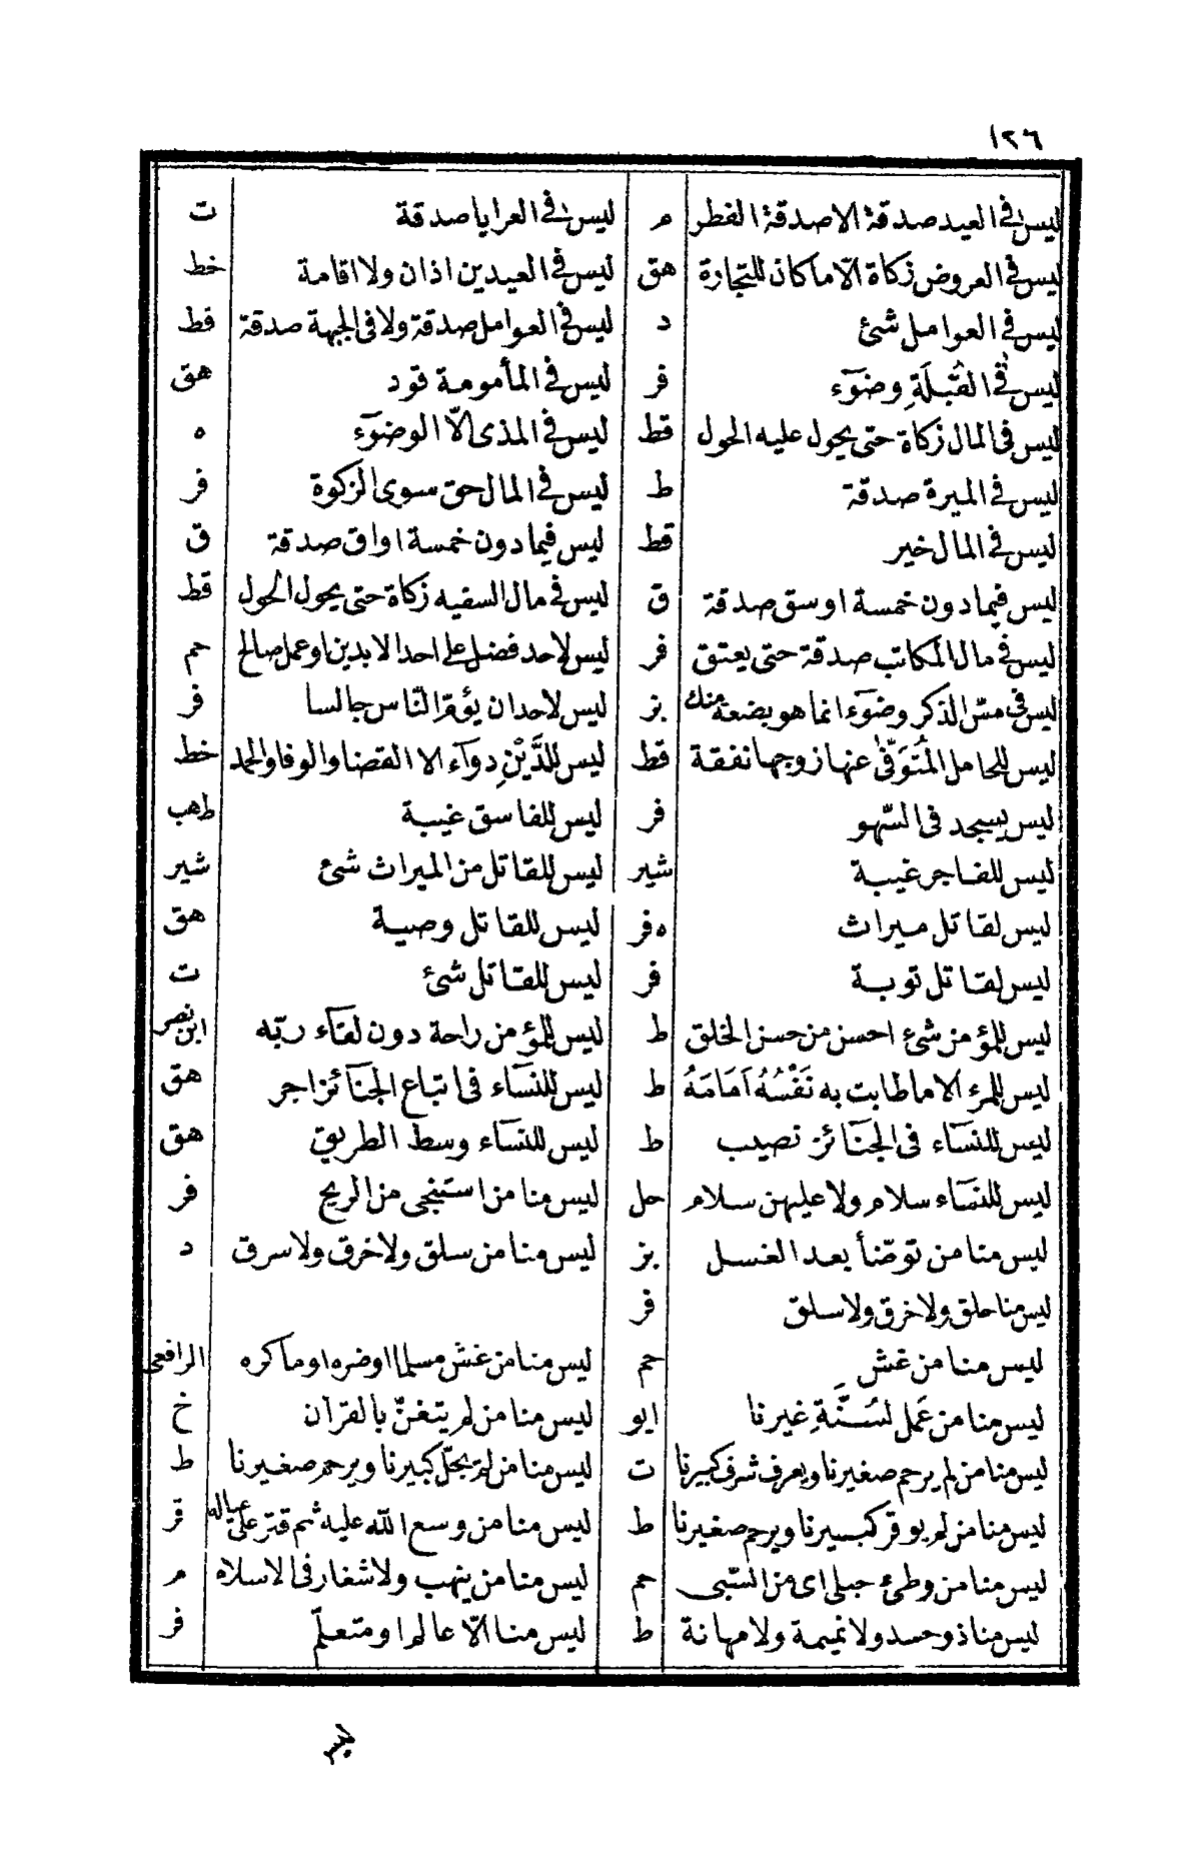 ١٢٦
ليس في العبد صدقة الا صدقة الفطر م ليس في العرايا صدقة ت
ليس في العروض زكاة الا ما كان للتجارة هق ليس في العيدين اذان ولا اقامة خط
ليس في العوامل شئ د ليس في العوامل صدقة ولا فى الجبهة صدقة قط
ليس في القُبلَةِ وضوٓء فر ليس في المأمومة قود هق
ليس فى المال زكاة حتى يحول عليه الحول قط ليس في المذى الّا الوضوٓء ه
ليس في الميرة صدقة ط ليس في المال حق سوى الزكوة فر
ليس في المال خير قط ليس فيما دون خمسة اواق صدقة ق
ليس فيما دون خمسة اوسق صدقة ق ليس في مال السفيه زكاة حتى يحول الحول قط
ليس في مال المكاتب صدقة حتى يعتق فر ليس لاحد فضل على احد الا بدين او عمل صالح حم
ليس فى مسّ الذكر وضوٓء انما هو بضعة منك بز ليس لاحد ان يؤقر النّاس جالسا فر
ليس للحامل المُتوَفّى عنها زوجها نفقة قط ليس للدَّيْنِ دوآء الا القضا والوفا والحمد خط
ليس يسجد فى السّهو فر ليس للفاسق غيبة طهب
ليس للفاجر غيبة شير ليس للقاتل من الميراث شئ شير
ليس لقاتل ميراث ه فر ليس للقاتل وصية هق
ليس لقاتل توبة فر ليس للقاتل شئ ت
ليس للمؤمن شئ احسن من حسن الخلق ط ليس للمؤمن راحة دون لقآء ربّه ابن نصر
ليس للمرء الا ما طابت به نَفْسُهُ اَمَامَهُ ط ليس للنسآء فى اتباع الجنآئز اجر هق
ليس للنسآء فى الجنآئز نصيب ط ليس للنسآء وسط الطريق هق
ليس للنسآء سلام ولا عليهن سلام حل ليس منا من استنجى من الريح فر
ليس منا من توضّأ بعد الغسل بز ليس منا من سلق ولا خرق ولا سرق د
ليس منا حلق ولا خرق ولا سلق فر
ليس منا من غش حم ليس منا من غشّ مسلما او ضره او ماكره الرافعى
ليس منا من عَمل لسُنَّةِ غيرنا ابو ليس منا من لم يتغنّ بالقرآن خ
ليس منا من لم يرحم صغيرنا ويعرف شرف كبيرنا ت ليس منا من لم يجلّ كبيرنا ويرحم صغيرنا ط
ليس منا من لم يوقر كبيرنا ويرحم صغيرنا ط ليس منا من وسع الله عليه ثم قتر على عياله فر
ليس منا من وطئ حبلى اى من السّبى حم ليس منا من ينهب ولا شغار فى الاسلام م
ليس منا ذو حسد ولا نميمة ولا مهانة ط ليس منا الّا عالم او متعلّم فر
ليس